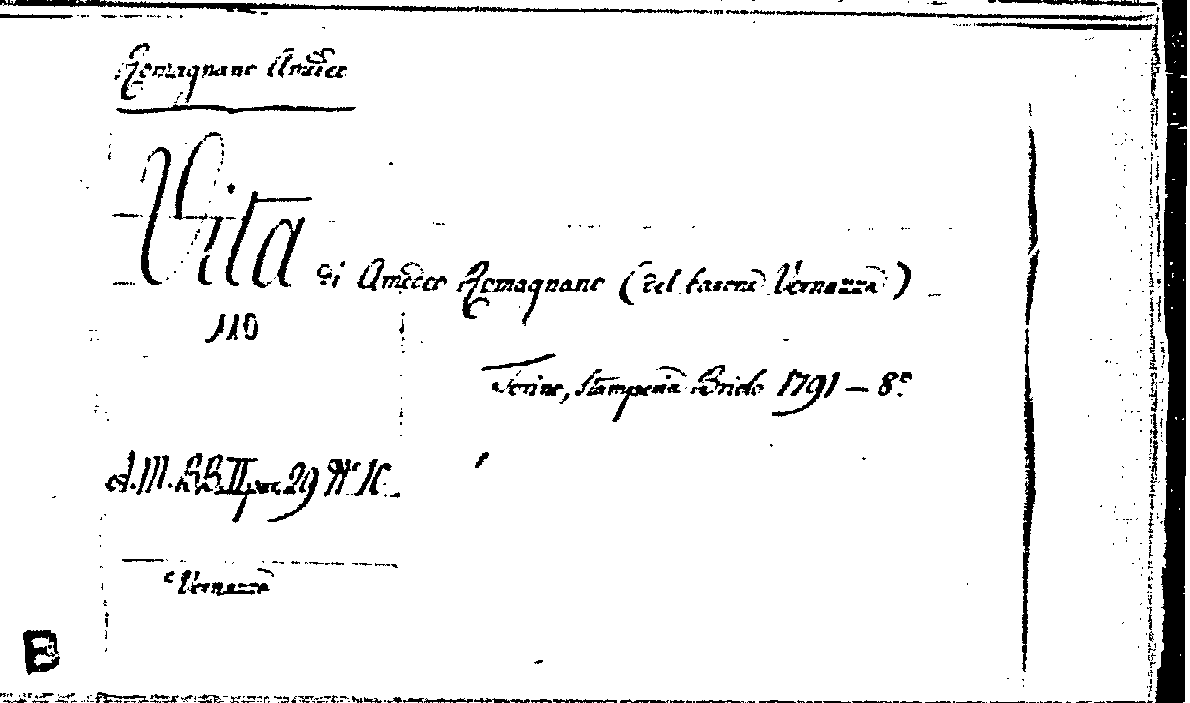 Romagnano Amedeo
Vita di Amedeo Romagnano (del barone Vernazza)
110
Torino, Stamperia Briolo 1791 – 8º
A. M. BB. II par. 29 Nº
Vernazza
B